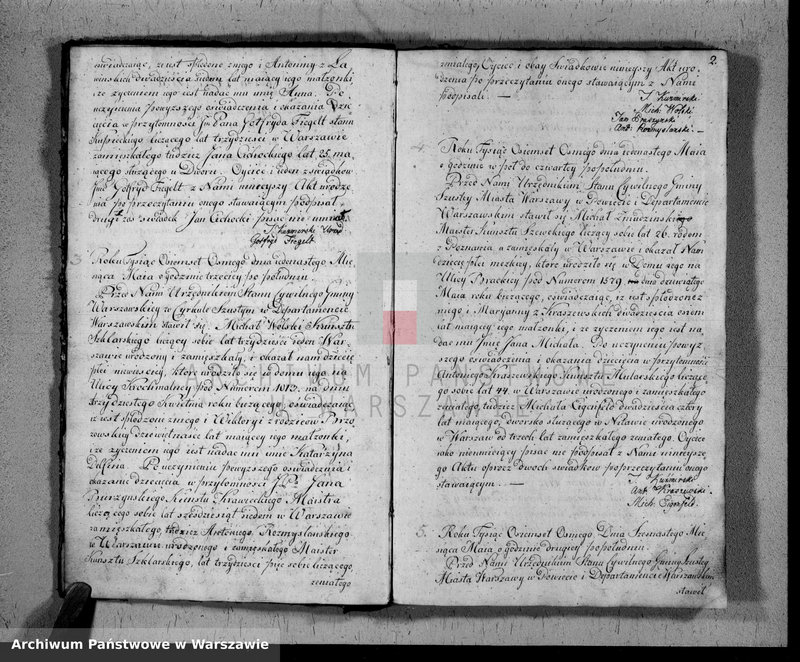 oswiadczaiąc, iż iest spłodzone z niego i Antoniny z
dwadzieścia siedm lat maiącey iego małżonki
i że życzeniem iego iest nadać mu imię Anna. Po
uczynieniu powyższego oświadczenia i okazania Dzie
cięcia w przytomności Jm Pana Gotfryda Fiegelt stanu
Kupieckiego liczącego lat trzydzieści w Warszawie
zamięszkałego tudzież Jana Cichockiego lat 25 ma
iącego służącego u Dworu. Oyciec i ieden z świadków
Jmć Gotfryd Fiegelt z Nami ninieyszy Akt urodze
nia po przeczytaniu onego stawaiącym podpisał,
drugi zaś świadek Jan Cichocki pisać nie umie
J. Kuźmirski
Gotfryd Fiegelt
3. Roku Tysiąc Ośmset Osmego dnia iedenastego Mie
siąca Maia o godzinie trzeciey po południu.
Przed Nami Urzędnikiem Stanu Cywilnego Gminy
Warszawskiey w Cyrkule Szustym w Departamencie
Warszawskim stawił się Michał Wolski Kunsztu
Szklarskiego liczący sobie lat trzydzieści ieden War
szawie urodzony i zamięszkały, i okazał nam dziecie
płci niewieściey, które urodziło się w domu iego na
Ulicy Krochmalney pod Numerem 1012 na dniu
trzydziestego Kwietnia roku bieżącego, oświadczaiąc
iż iest spłodzone z niego i Wiktoryi z rodziców Brzo
zowskiey dziewiętnaście lat maiącey iego małżonki,
i że życzeniem iego iest nadać mu imie Katarzyna
Delfina. Po uczynieniu powyższego oświadczenia i
okazaniu dziecięcia w przytomności Jana
Burzyńskiego Kunsztu Krawieckiego Maistra
liczącego sobie lat sześdziesiąt siedem w Warszawie
zamięszkałego, tudzież Antoniego Rozmysłowskiego
w Warszawie urodzonego i zamięszkałego Maister
Kunsztu Szklarskiego, lat trzydzieści pięć sobie liczącego,
żonatego
2.
żonatego, Oyciec i obay Świadkowie ninieyszy Akt uro
dzenia po przeczytaniu onego stawaiącym z Nami
podpisali. —
J. Kuźmirski
Mich. Wolski
Jan Burzyński
Ant. Rozmysłowski. —
4. Roku Tysiąc Ośmset Osmego dnia iedenastego Maia
o godzinie w pół do czwartey po południu.
Przed Nami Urzędnikiem Stanu Cywilnego Gminy
Szustey Miasta Warszawy w Powiecie i Departamencie
Warszawskim stawił się Michał
Maister Kunsztu Szewckiego liczący sobie lat 26. rodem
z Poznania a zamięszkały w Warszawie i okazał Nam
dziecię płci męzkiey, które urodziło się w Domu iego na
Ulicy Brackiey pod Numerem 1579 dnia dziewiątego
Maia roku bieżącego, oświadczaiąc, iż iest spłodzone z
niego i Maryanny z Kraszewskich dwadzieścia osiem
lat maiącey iego małżonki, i że życzeniem iego iest na
dać mu Jmię Jana Michała. Po uczynieniu powyż
szego oświadczenia i okazania dziecięcia w przytomności
Antoniego Kraszewskiego Kunsztu Mularskiego liczące
go sobie lat 44. w Warszawie urodzonego i zamięszkałego
żonatego, tudzież Michała Cigenfeld dwadzieścia cztery
lat maiącego, dworsko służącego w Mitawie urodzonego
w Warszaw od trzech lat zamięszkałego żonatego. Oyciec
iako nieumieiący pisać nie podpisał z Nami ninieysze
go Aktu oprócz dwóch świadków po przeczytaniu onego
stawaiącym. —
J. Kuźmirski
Ant. Kraszewski.
Mich. Cigenfeld.
5. Roku Tysiąc Ośmset Osmego Dnia Szesnastego Mie
siąca Maia o godzinie drugiey po południu.
Przed Nami Urzędnikiem Stanu Cywilnego Gminy Szustey
Miasta Warszawy w Powiecie i Departamencie Warszawskim
stawił
ARCHIWUM PAŃSTWOWE
W WARSZAWIE
Archiwum Państwowe w Warszawie